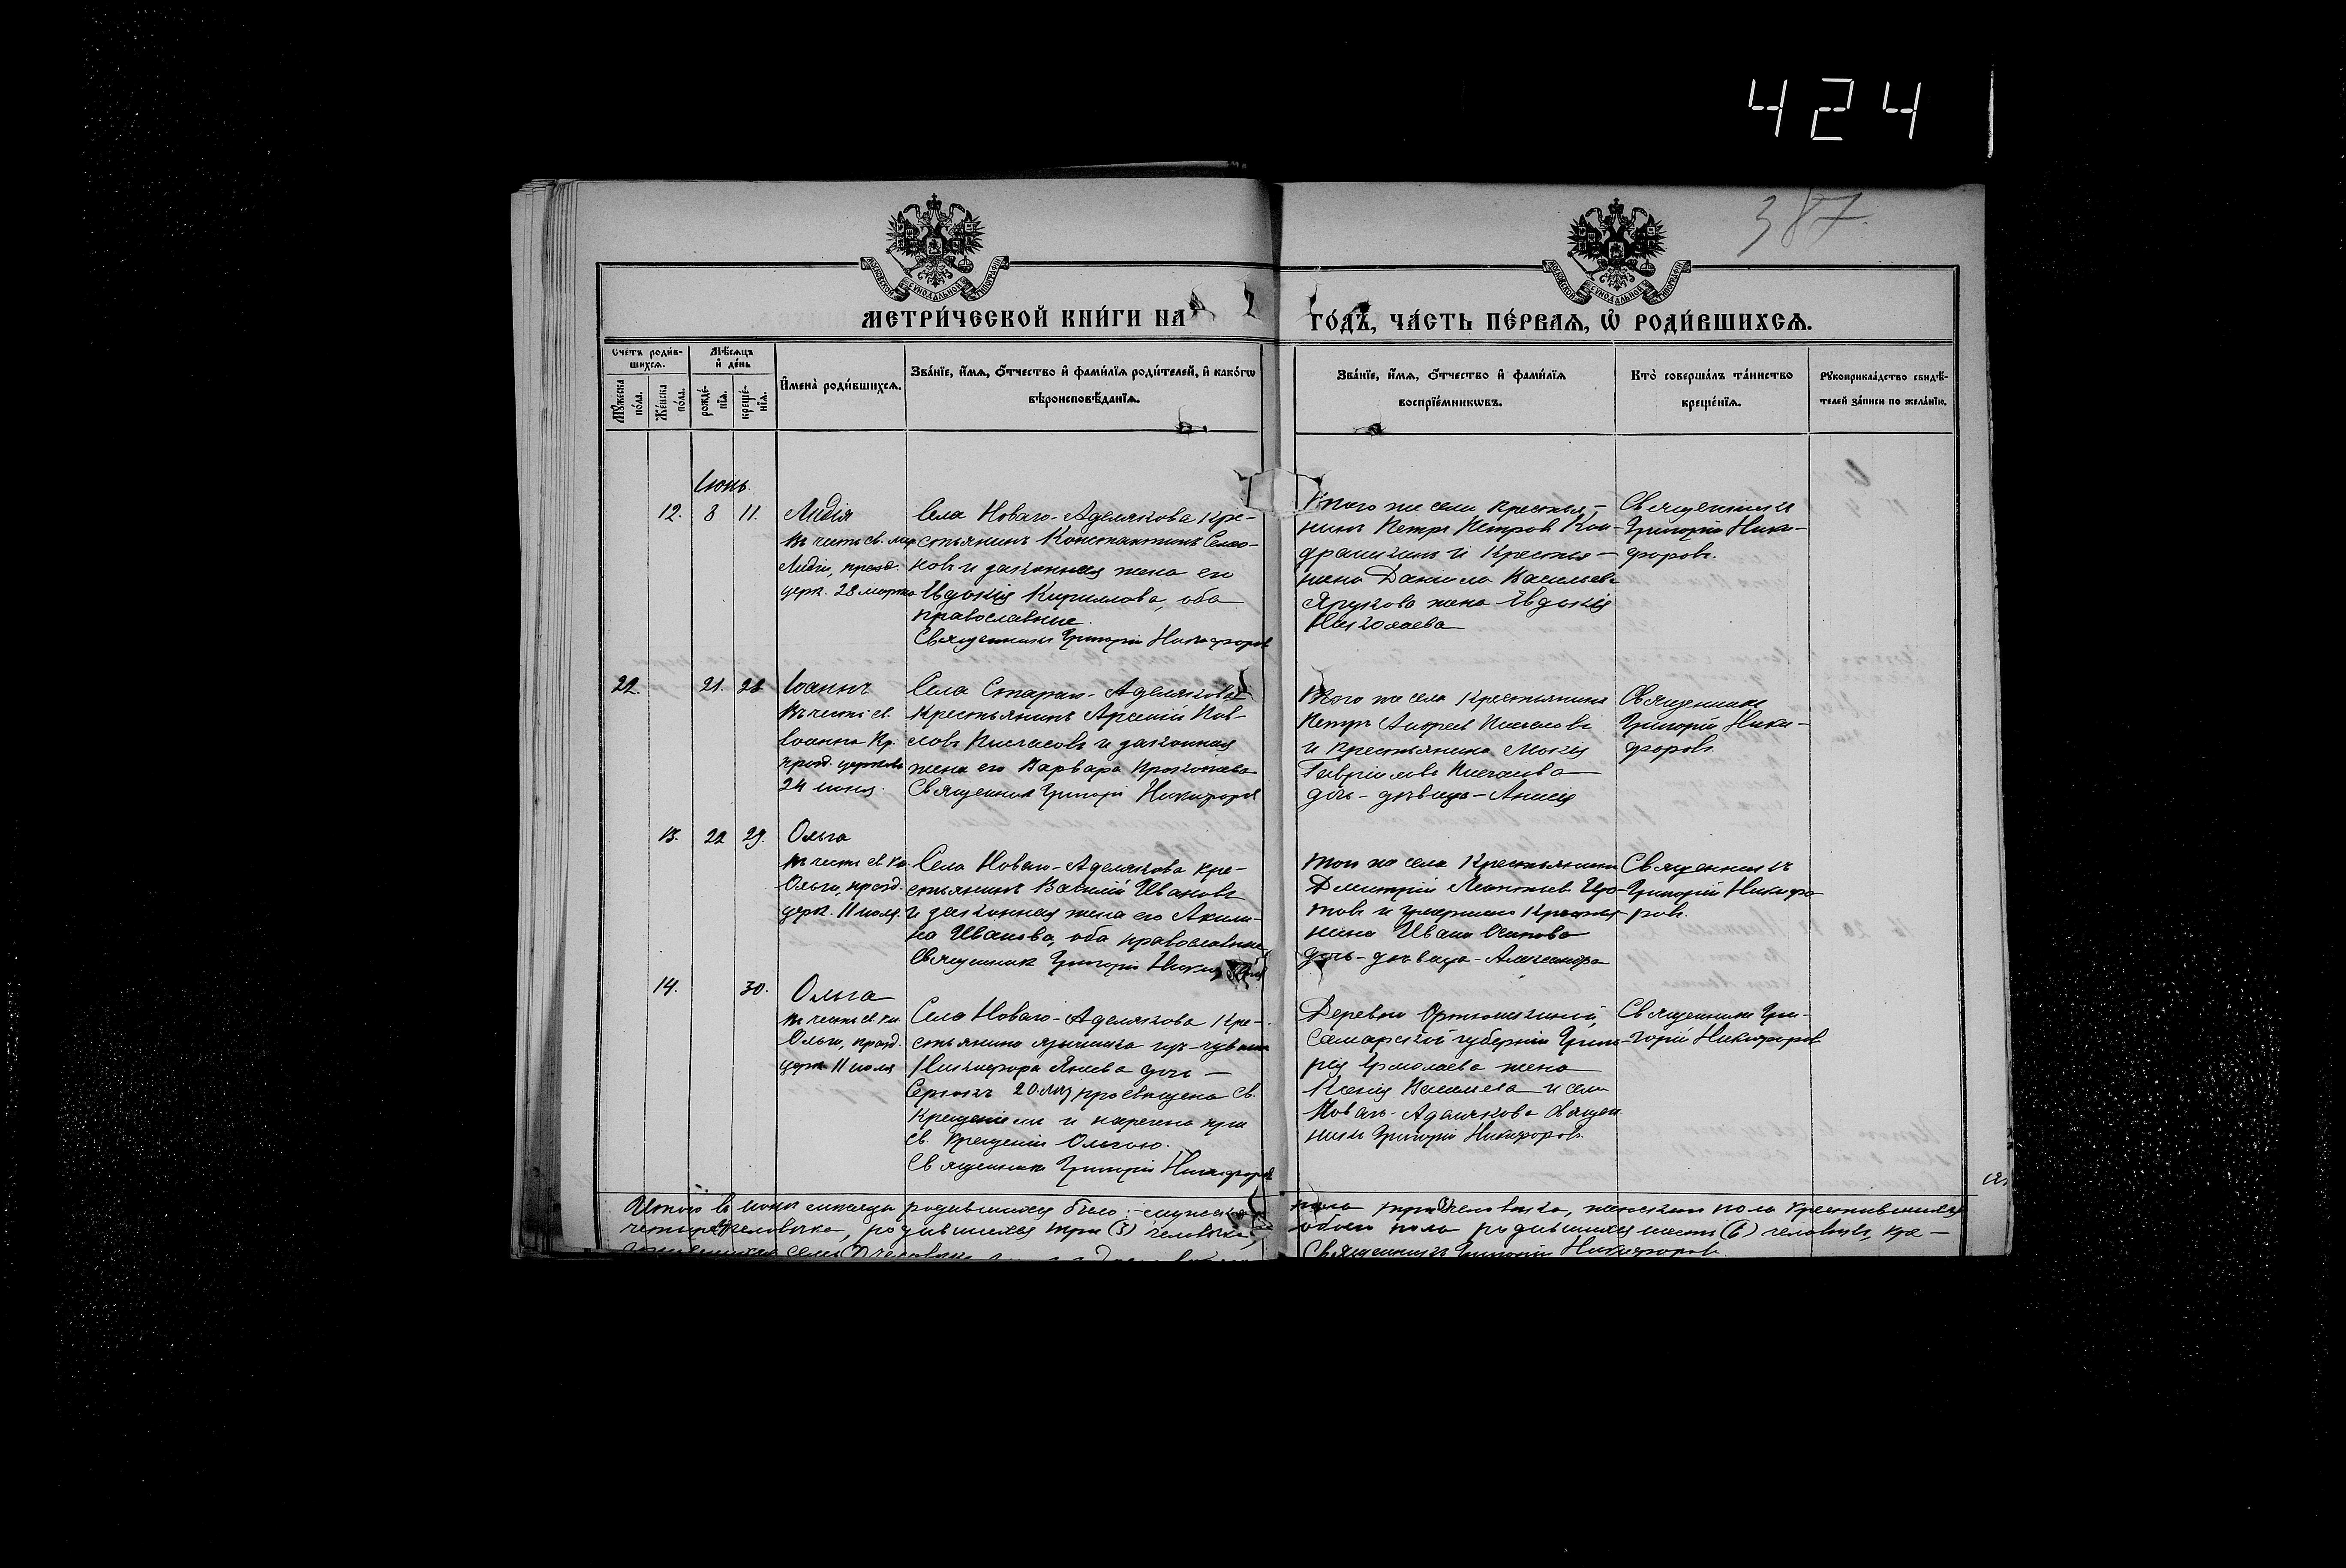 424
387
МОСКОВСКОЙ СѴНОДАЛЬНОЙ ТИПОГРАФІИ
МОСКОВСКОЙ СѴНОДАЛЬНОЙ ТИПОГРАФІИ
МЕТРИ́ЧЕСКОЙ КНИ́ГИ НА
ГО́ДЪ, ЧА́СТЬ ПЕ́РВАѦ, Ѡ҆ РОДИ́ВШИХСѦ.
Сче́тъ роди́в-
шихсѧ.
Мꙋ́жеска по́ла.
Же́нска по́ла.
Мѣ́сѧцъ
и҆ де́нь
рожде́-
нїѧ.
креще́-
нїѧ.
И҆мена̀ роди́вшихсѧ.
Зва́нїе, и҆́мѧ, ѻ҆́тчество и҆ фами́лїѧ роди́телей, и҆ како́гѡ
вѣроисповѣ́данїѧ.
Зва́нїе, и҆́мѧ, ѻ҆́тчество и҆ фами́лїѧ
воспрїе́мникѡвъ.
Кто̀ соверша́лъ та́инство
креще́нїѧ.
Рꙋкоприкла́дство свидѣ́-
телей за́писи по жела́нїю.
Іюнь.
12. 8 11.
Лидія
въ честь св. мцы
Лидіи, празд.
церк. 28 марта
Села Новаго-Аделякова кре-
стьянинъ Константинъ
новъ и законная жена его
Евдокія Кириллова, оба
православные.
Священникъ Григорій Никифоровъ
Того же села крестья-
нинъ Петръ Петровъ Кон-
драшкинъ и крестья-
нина Даніила Васильева
Ярукова жена Евдокія
Николаева
Священникъ
Григорій Ники-
форовъ.
22. 21. 28
Іоаннъ
въ честь св.
Іоанна Кр.
празд. церковь
24 июня.
Села Стараго-Аделякова
крестьянинъ Арсеній Пав-
ловъ и законная
жена его Варвара Прокопіева
Священникъ Григорій Никифоровъ
Того же села крестьянинъ
Петръ Андреевъ
и крестьянина
Гавріилова
дочь-дѣвица-Анисія
Священникъ
Григорій Ники-
форовъ.
13. 22 29.
Ольга
въ честь св. кн.
Ольги, празд.
церк. 11 июля.
Села Новаго-Аделякова кре-
стьянинъ Василій Ивановъ
и законная жена его Акили-
на Иванова, оба православные
Священникъ Григорій Никифоровъ
Того же села крестьянинъ
Димитрій Леонтьевъ
товъ и умершаго крестья-
нина Ивана Осипова
дочь-дѣвица-Александра
Священникъ
Григорій Никифо
ровъ.
14. 30.
Ольга
въ честь св. кн.
Ольги, празд.
церк. 11 июля
Села Новаго-Аделякова кре-
стьянина язычника изъ чувашъ
Никифора Янаева дочь-
20 лѣтъ просвѣщена св.
крещеніемъ и наречена при
св. крещеніи Ольгою.
Священникъ Григорій Никифоровъ
Деревни Артюшкиной,
Самарской губерніи Григо-
рія Ермолаева жена
Ксенія Васильева и села
Новаго-Аделякова священ
никъ Григорій Никифоровъ.
Священникъ Гри-
горій Никифоровъ
Итого въ июнѣ мѣсяцѣ родившихся было: мужескаго
пола три человѣка, женскаго пола крестившихся
четыре человѣка, родившихся три (3) человѣка,
обоего пола родившихся шесть (6) человѣкъ, кре-
семь (7) человѣкъ
Священникъ Григорій Никифоровъ.